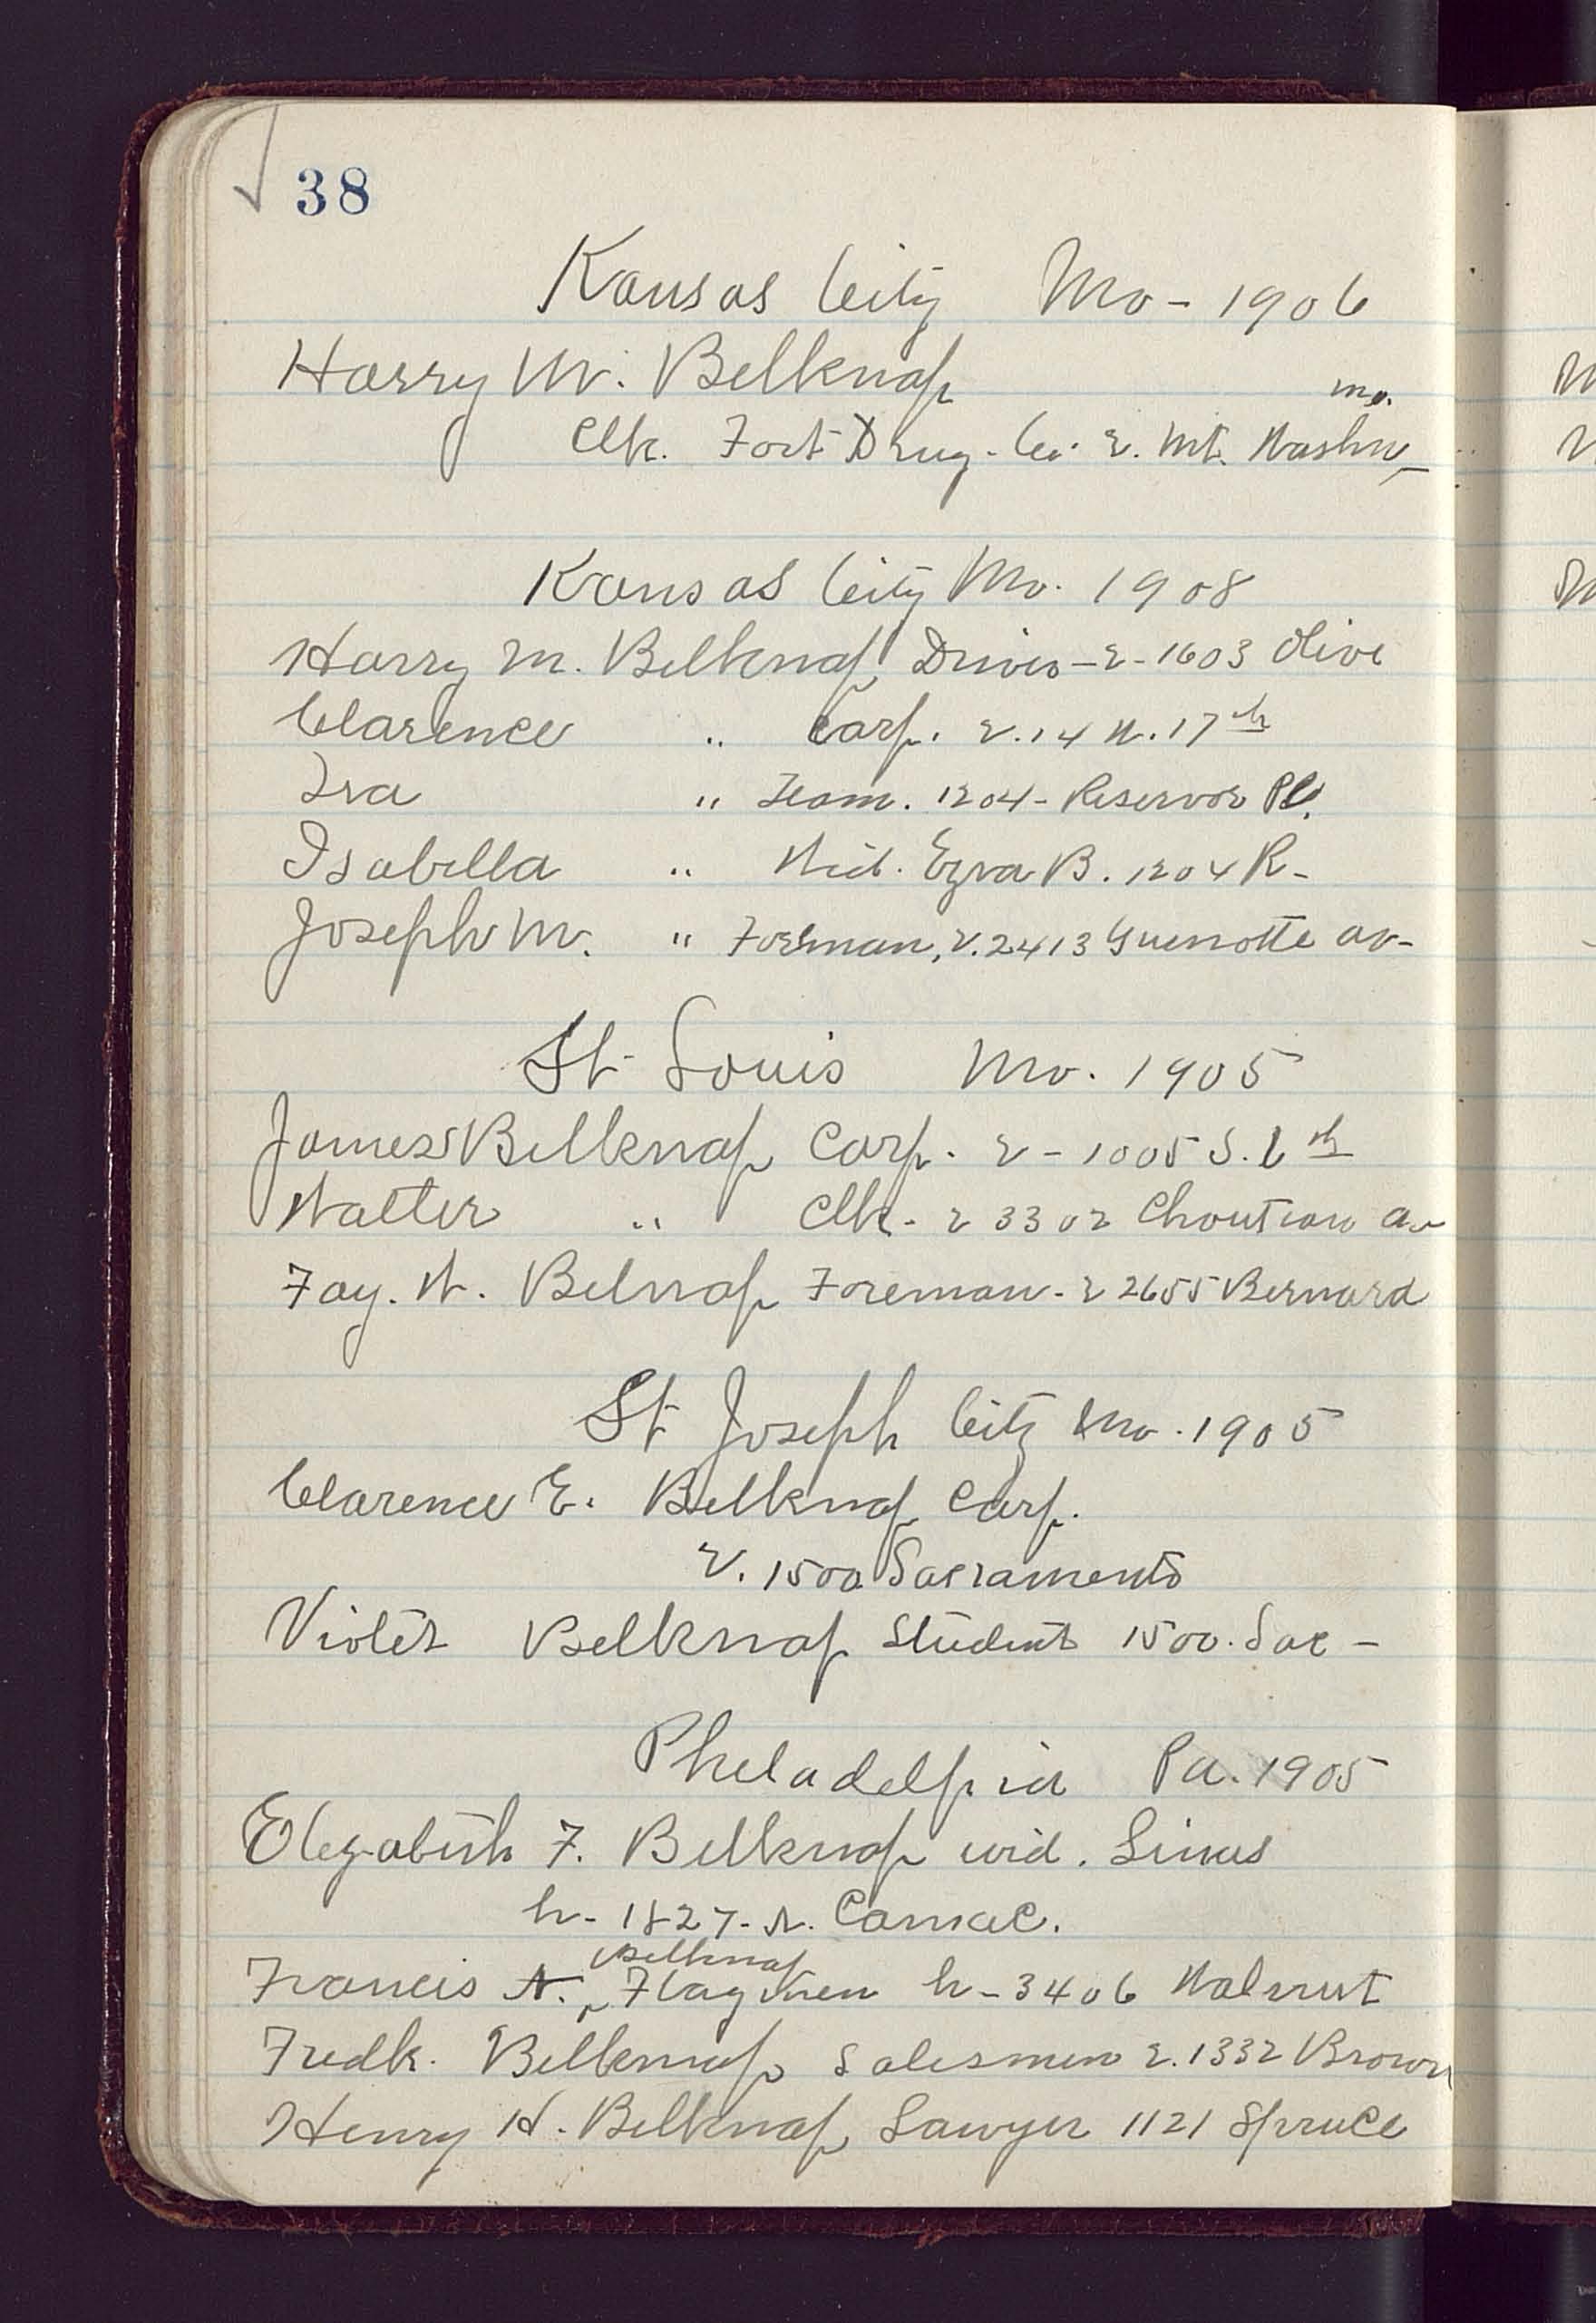 38
Kansas City Mo - 1906
Harry M. Belknap
mo.
Clk. Fort Drug. Co. r. Mt. Washn
Kansas City Mo. 1908
Harry M. Belknap Driver - r - 1603 Olive
Clarence " Carp. r. 14 N. 17th
Ira " Team. 1204 - Reservor Pl.
Isabella " Wid. Ezra B. 1204 R -
Joseph M. " Foreman, r. 2413 Guenotte av -
St Louis Mo. 1905
James Belknap Carp. r - 1005 S. 6th
Walter " Clk - r 3302 Chouteau av
Fay. W. Belnap Foreman - r 2655 Bernard
St Joseph City Mo. 1905
Clarence E. Belknap Carp.
r. 1500 Sacramento
Violet Belknap Student 1500. Sac -
Pheladelpia Pa. 1905
Elezabeth F. Belknap wid. Linus
h - 1827 - N. Camac.
Belknap
Francis A. h - 3406 Walnut
Fredk. Belknap Salesman r. 1332 Brown
Henry H. Belknap, Lawyer 1121 Spruce